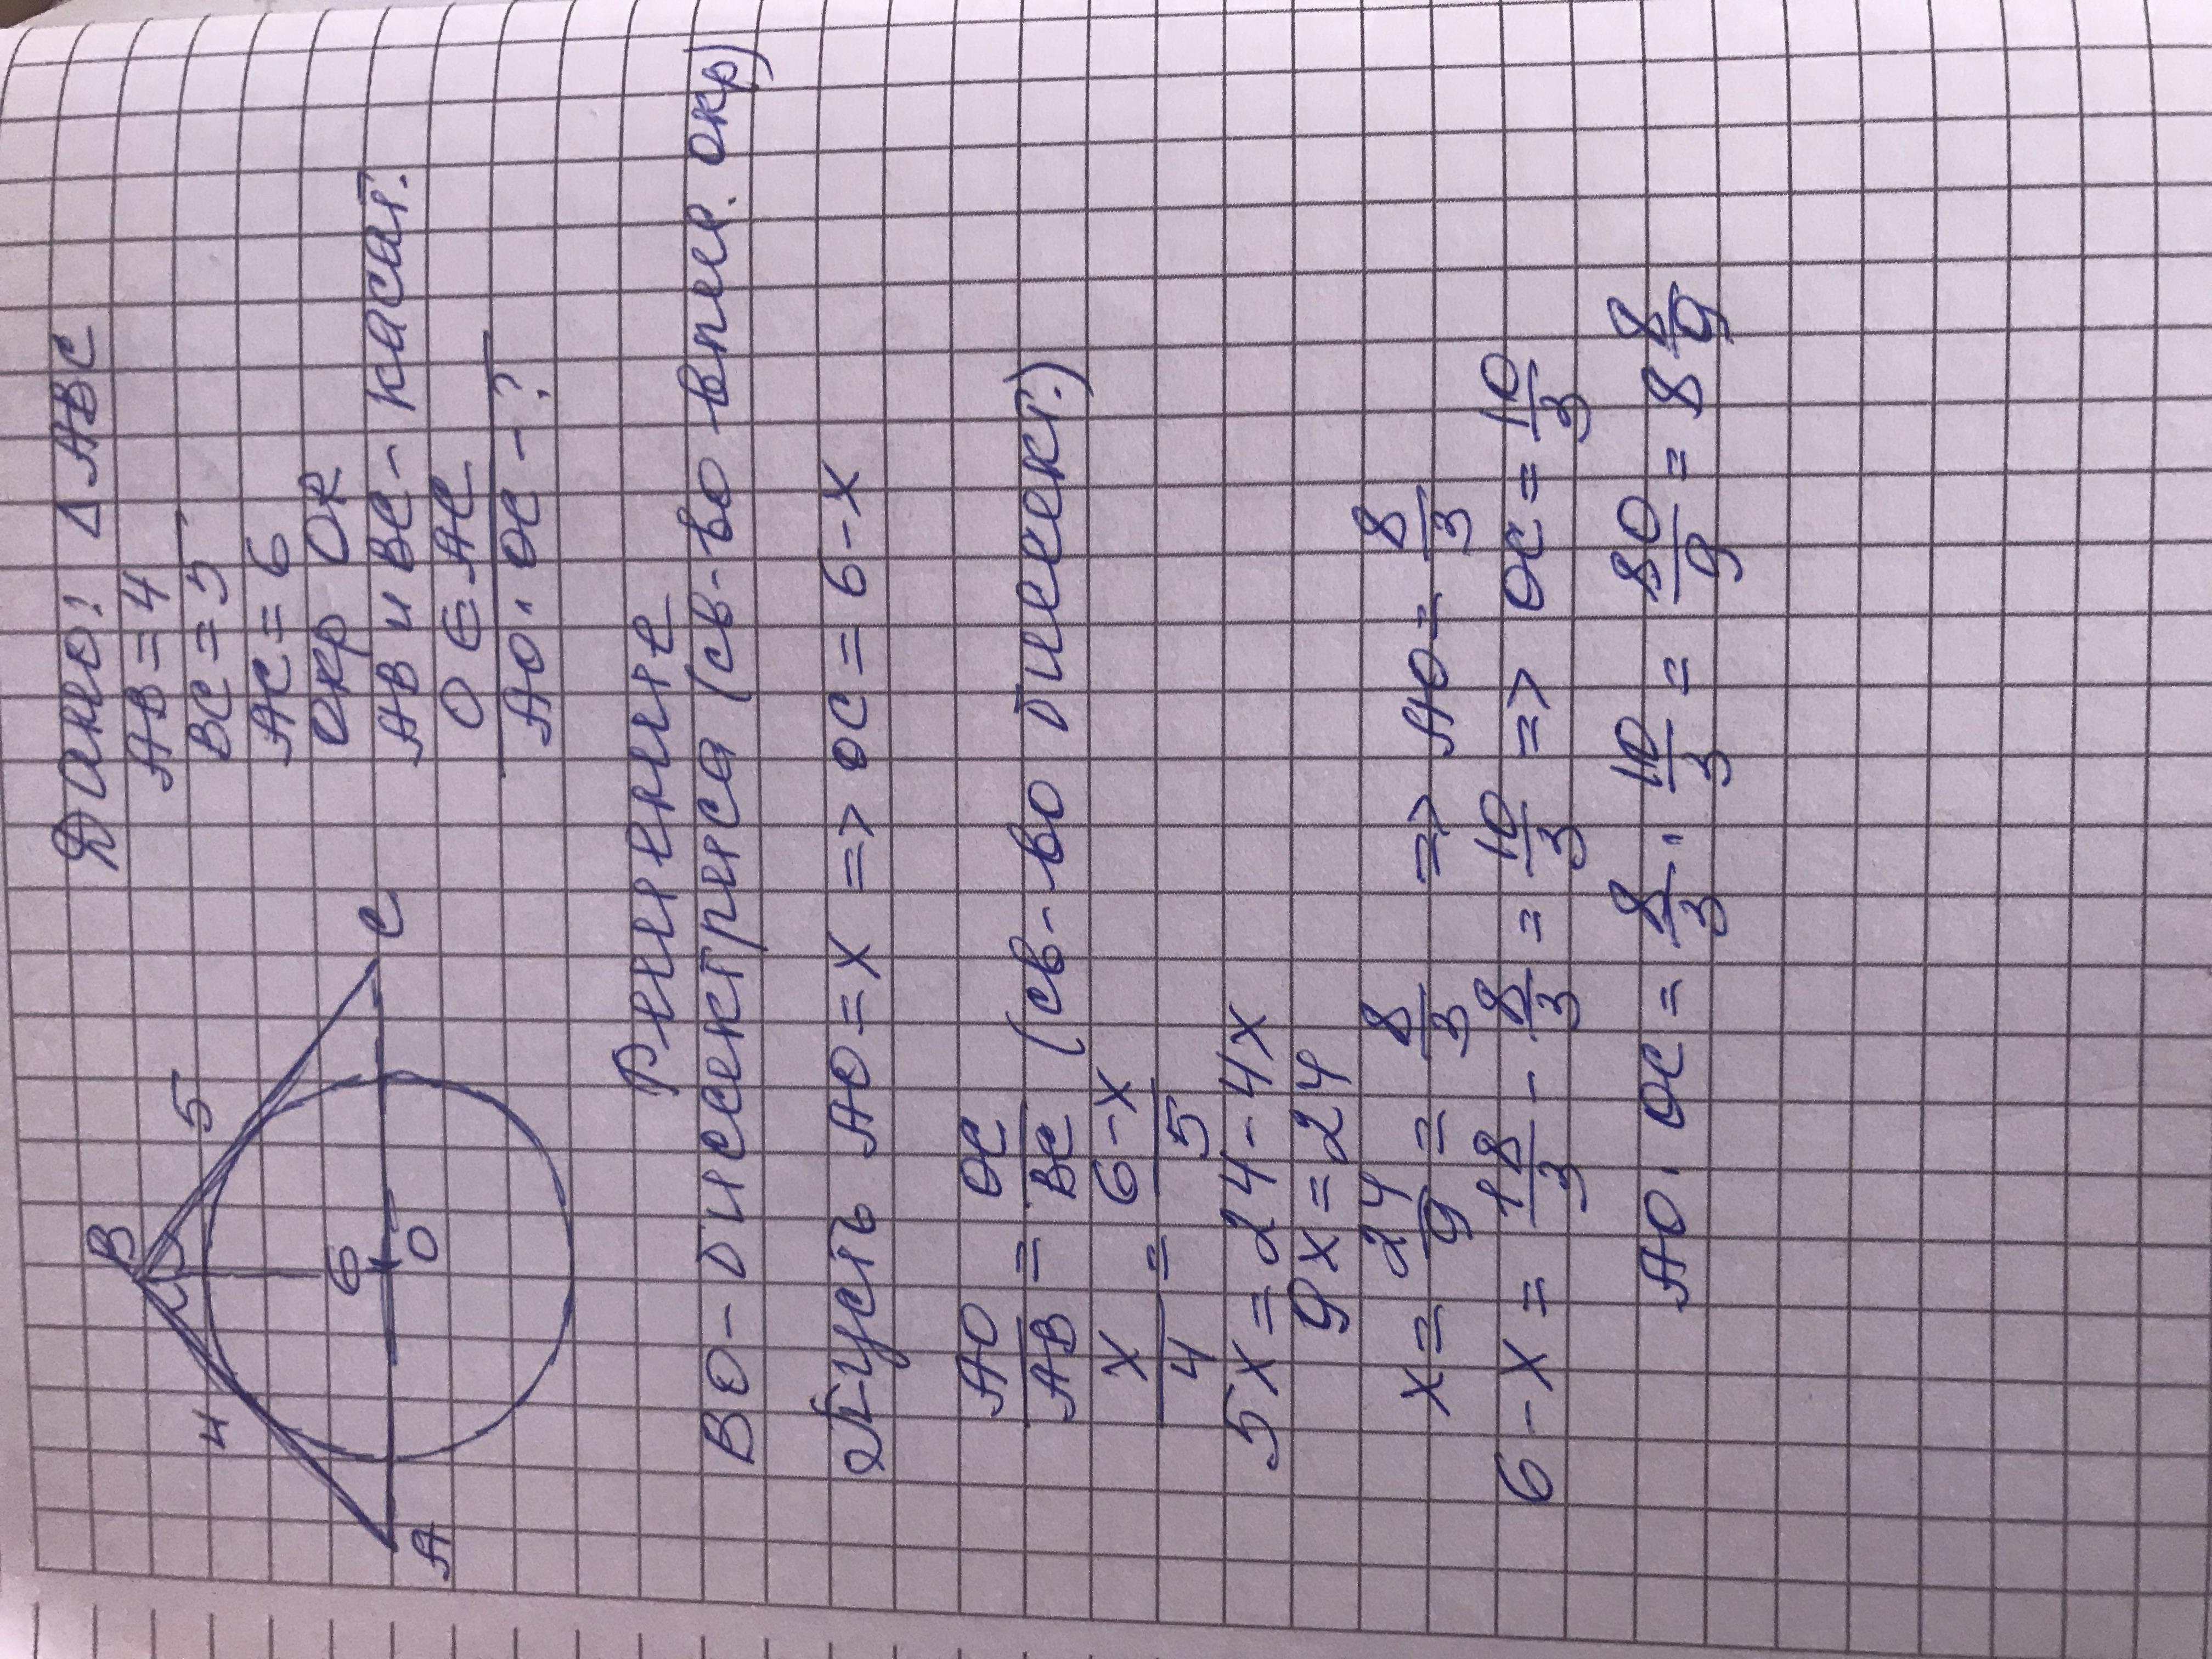 B
4
5
6
A
O
C
Дано: Δ ABC
AB = 4
BC = 5
AC = 6
Окр OR
AB и BC - касат.
O ∈ AC
AO · OC - ?
Решение
BO - биссектриса (св-во впис. окр)
Пусть AO = x => OC = 6 - x
AO/AB = OC/BC (св-во биссект.)
x/4 = 6-x/5
5x = 24 - 4x
9x = 24
x = 24/9 = 8/3 => AO = 8/3
6 - x = 18/3 - 8/3 = 10/3 => OC = 10/3
AO · OC = 8/3 · 10/3 = 80/9 = 8 8/9